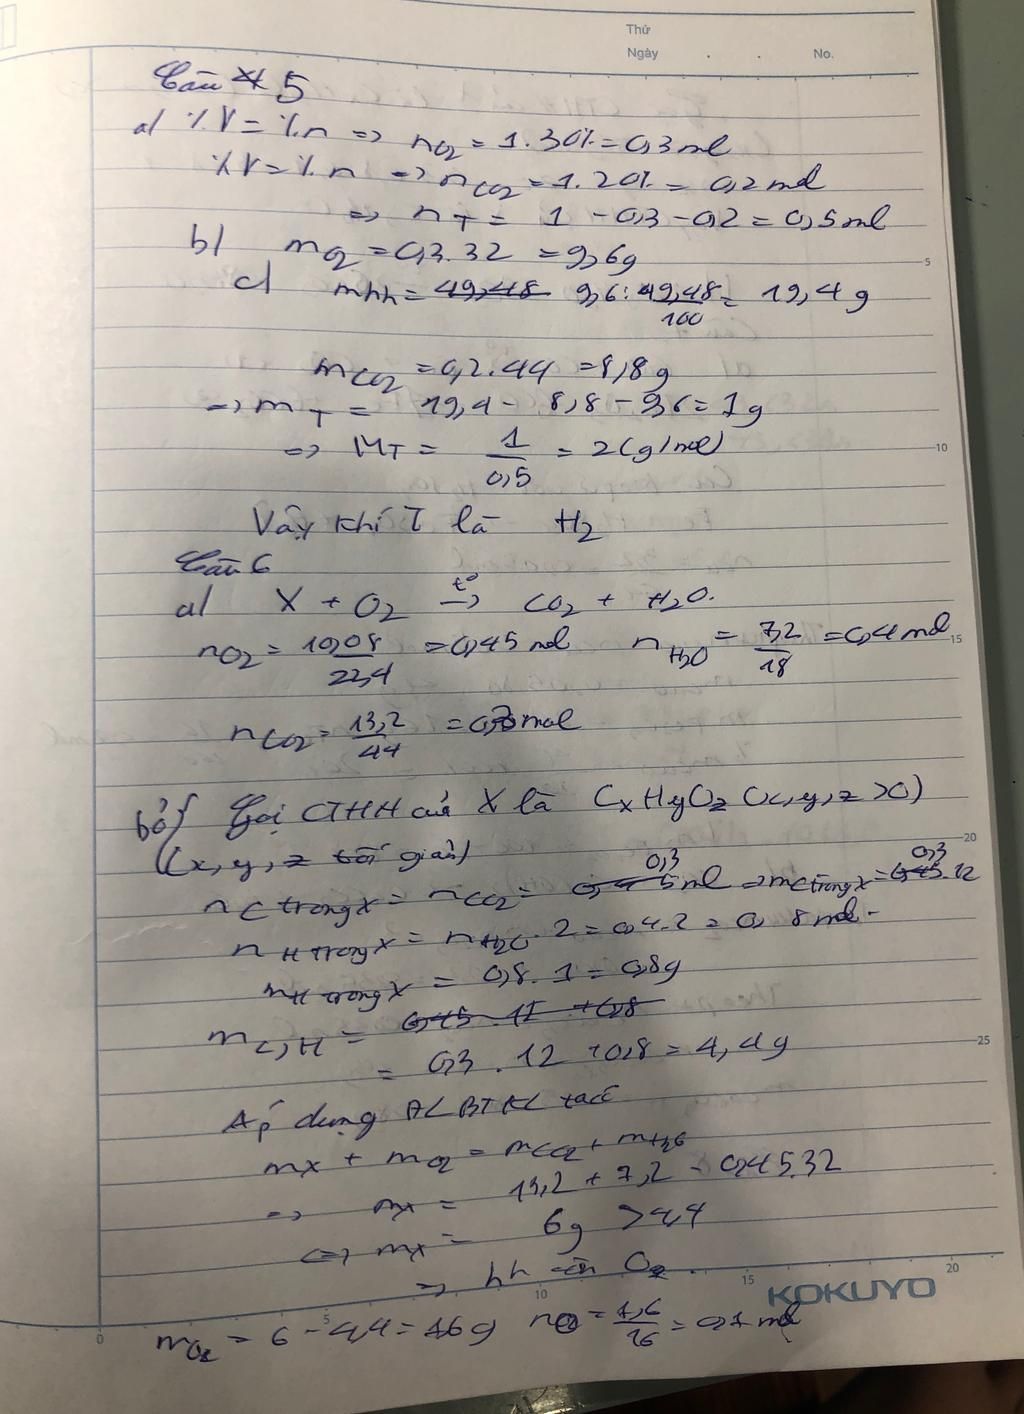 Thứ
Ngày . . No.
Câu 5
a/ %V = %n => nO2 = 1.30% = 0,3 mol
%V = %n => nCO2 = 1.20% = 0,2 mol
=> nT = 1 - 0,3 - 0,2 = 0,5 mol
b/ mO2 = 0,3.32 = 9,6g
c/ mhh = 49,48 9,6 : 49,48/100 = 19,4 g
mCO2 = 0,2.44 = 8,8 g
=> mT = 19,4 - 8,8 - 9,6 = 1 g
=> MT = 1/0,5 = 2 (g/mol)
Vậy khí T là H2
Câu 6
a/ X + O2 t° -> CO2 + H2O.
nO2 = 10,08/22,4 = 0,45 mol nH2O = 7,2/18 = 0,4 mol
nCO2 = 13,2/44 = 0,3 mol
b/ Gọi CTHH của X là CxHyOz (x,y,z >0)
(x,y,z tối giản)
nC trong X = nCO2 = 0,3 mol => mC trong X = 0,3.12
nH trong X = nH2O.2 = 0,4.2 = 0,8 mol
mH trong X = 0,8.1 = 0,8g
mC,H = 0,45.12 + 0,8
= 0,3 . 12 + 0,8 = 4,4g
Áp dụng ĐLBTKL ta có
mX + mO2 = mCO2 + mH2O
=> mX = 13,2 + 7,2 - 0,45.32
<=> mX = 6g > 4,4
=> hh O
mO = 6 - 4,4 = 1,6 g nO = 1,6/16 = 0,1 mol
5
10
15
20
25
0
5
10
15
20
KOKUYO